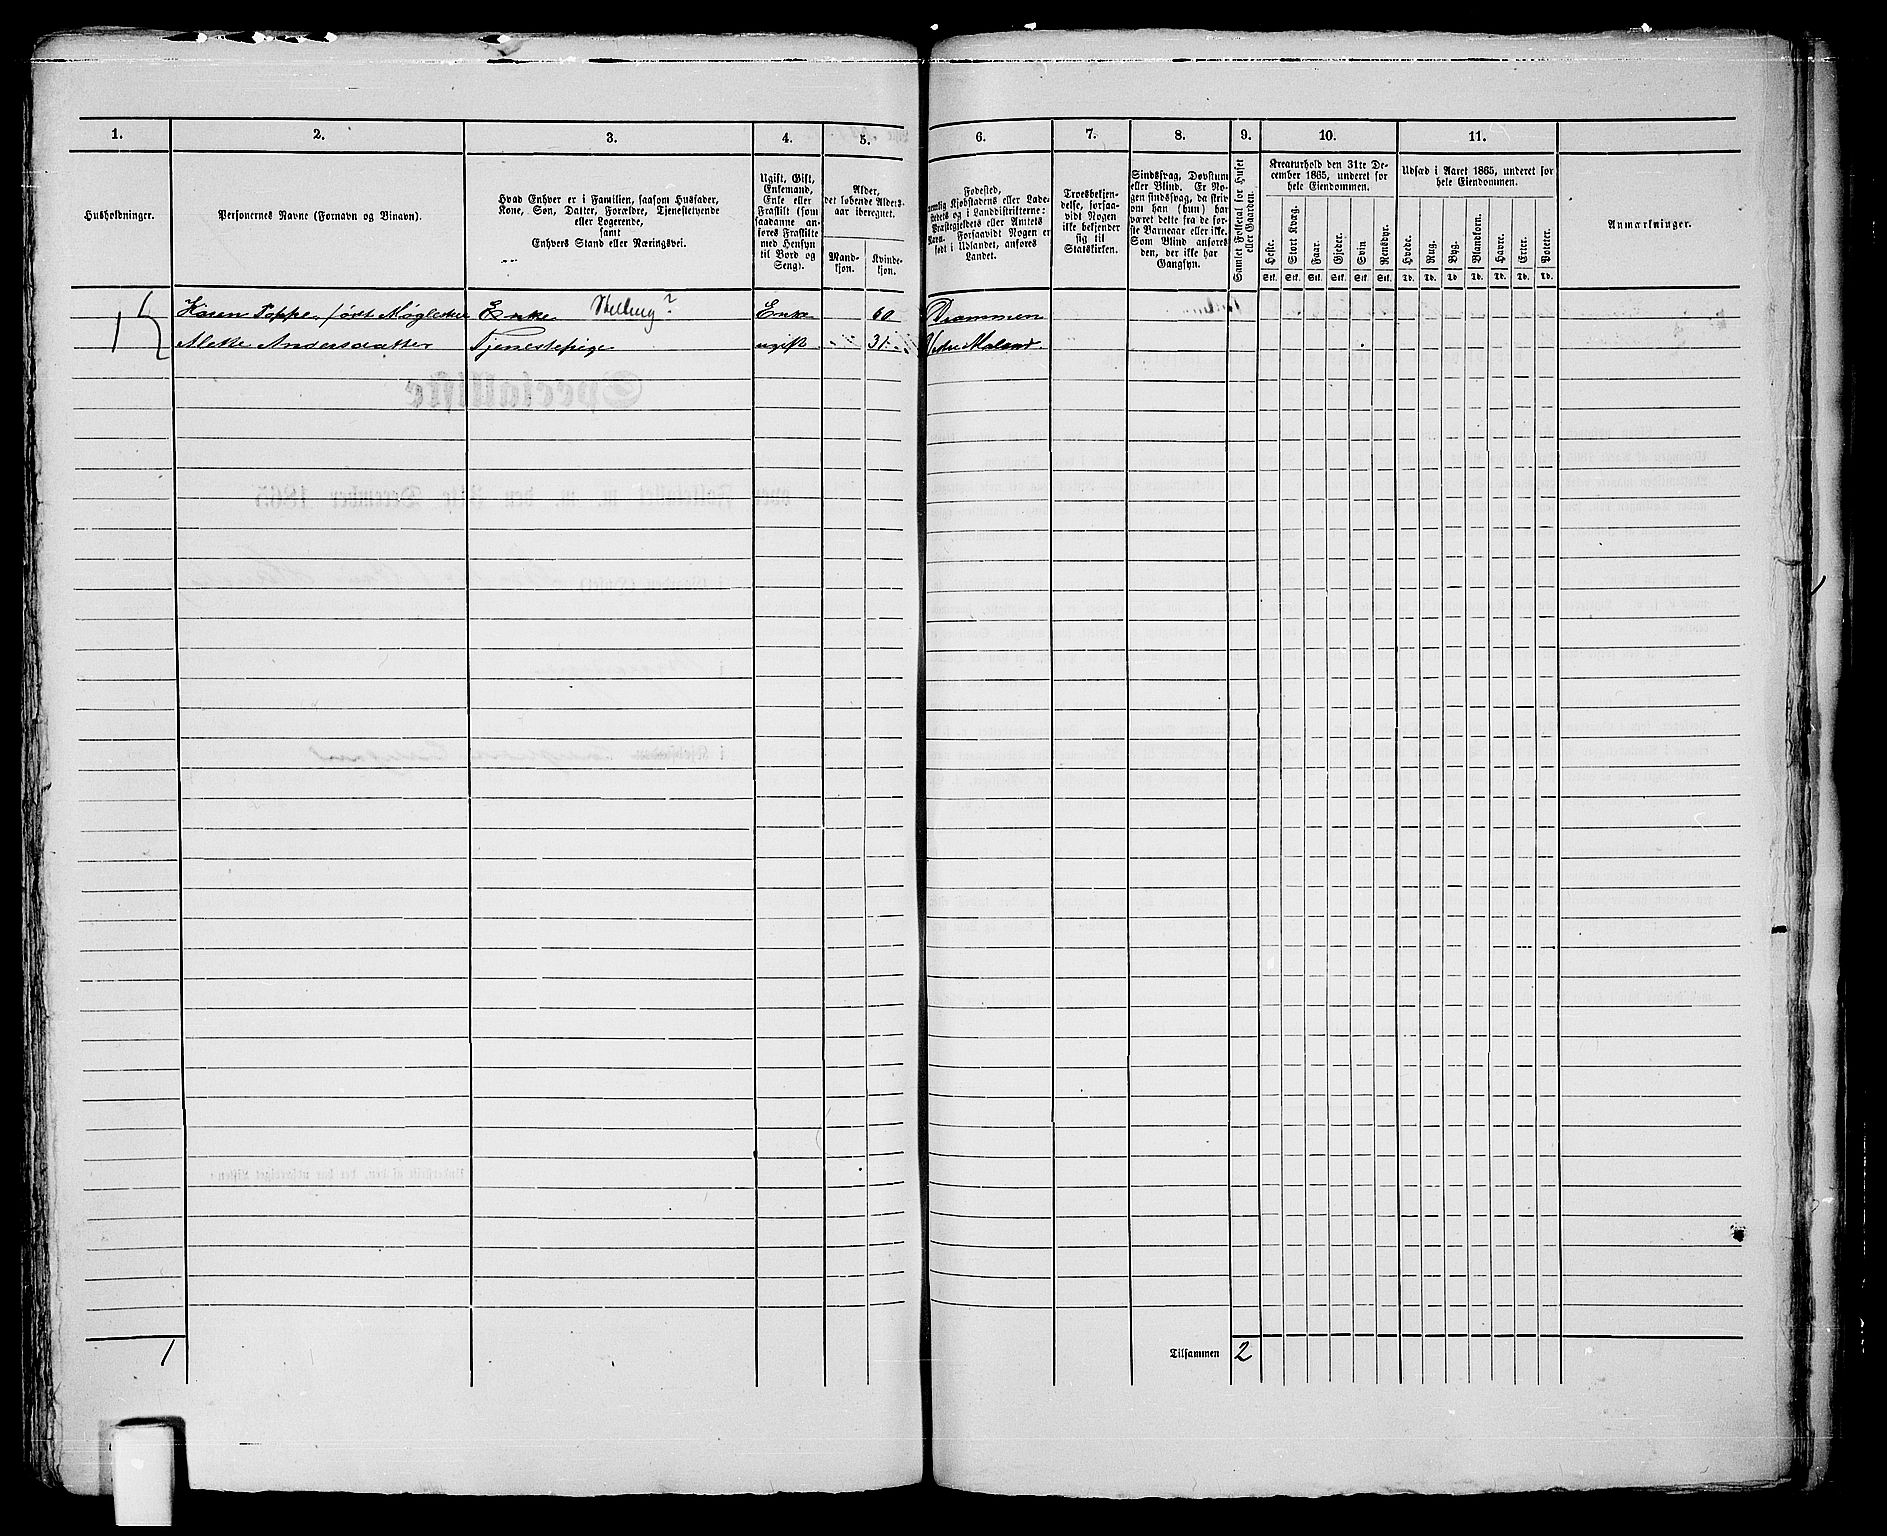 1. 2. 3. 4. 5. 6. 7. 8. 9. 10. 11.
Husholdninger.
Personernes Navne (Fornavn og Binavn).
Hvad Enhver er i Familien, saasom Husfader,
Kone, Søn, Datter, Forældre, Tjenestetyende
eller Logerende,
samt
Enhvers Stand eller Næringsvei.
Ugift, Gift,
Enkemand,
Enke eller
Fraskilt (som
saadanne an-
føres Fraskilte
med Hensyn
til Bord og
Seng).
Alder,
det løbende Alders-
aar iberegnet.
Mand-
kjøn.
Kvinde-
kjøn.
Fødested,
nemlig Kjøbstadens eller Lade-
stedets og i Landdistrikterne:
Præstegjeldets eller Amtets
Navn. Forsaavidt Nogen er
født i Udlandet, anføres
Landet.
Troesbekjen-
delse, forsaa-
vidt Nogen
ikke bekjender
sig til
Statskirken.
Sindssvag, Døvstum
eller Blind. Er No-
gen sindssvag, da skriv
om han (hun) har
været dette fra de før-
ste Barneaar eller ikke.
Som Blind anføres
den, der ikke har
Gangsyn.
Samlet Folketal for Huset
eller Gaarden.
Kreaturhold den 31te De-
cember 1865, underet for
hele Eiendommen.
Heste. Stort Kvæg. Faar. Gjeder. Svin Rensdyr.
Stk. Stk. Stk. Stk. Stk. Stk.
Udsæd i Aaret 1865, underet for
hele Eiendommen.
Hvede. Rug. Byg. Blandkorn. Havre. Erter. Poteter.
Td. Td. Td Td. Td. Td. Td.
Anmærkninger.
1 Karen Poppe, født Enke ? Enke 60 Drammen
Alette Andersdatter Tjenestepige ugift 31 Vestre Moland.
1 Tilsammen 2